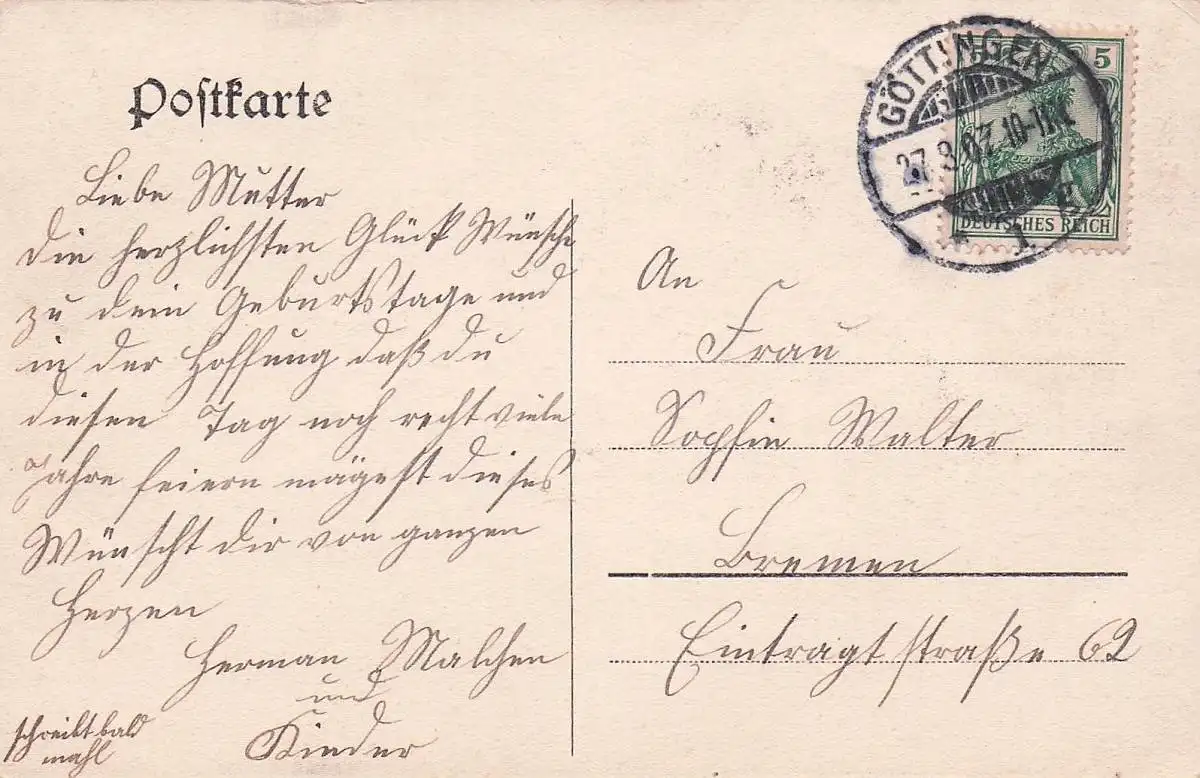 Postkarte
Liebe Mutter
Die herzlichsten Glück Wünsche
zu dein Geburtstage und
in der Hoffung daß du
diesen Tag noch recht viele
Jahre feiern mägest dieses
Wünscht dir von ganzen
Herzen
Herman Malchen
und
Kinder
schreibt bald
mahl
GÖTTINGEN
27.3.07. 10-11
1
5 5
DEUTSCHES REICH
An
Frau
Sophie Walter
Bremen
Eintragt straße 62